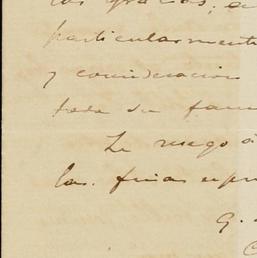 las gracias, a
particularmente
y consideracion
toda su fam
Le ruego a
las finas expr
G.